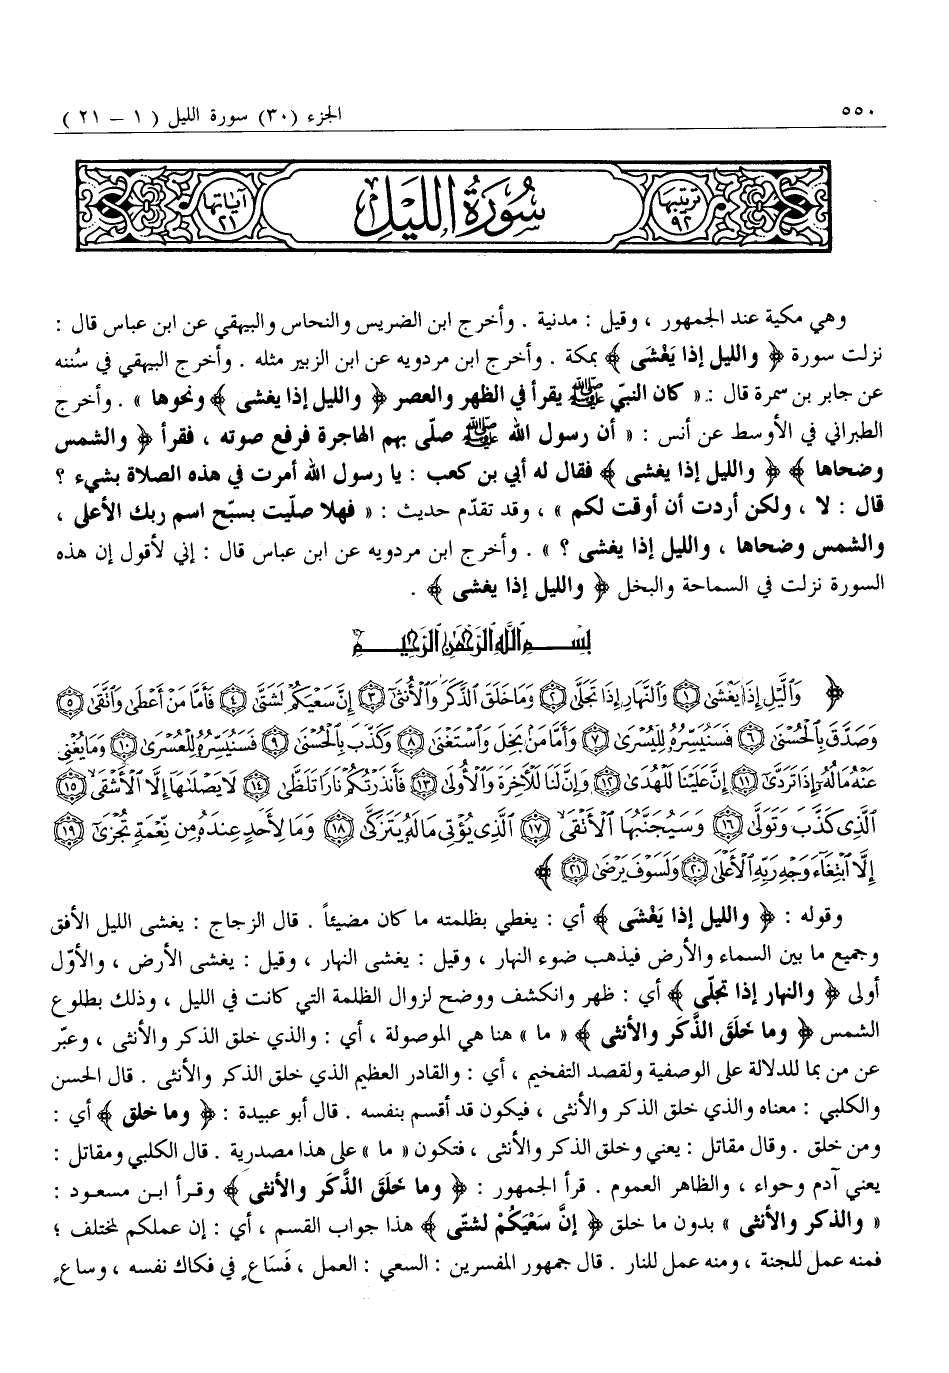 ٥٥٠
الجزء (٣٠) سورة الليل ( ١ - ٢١ )
ترتيبها ٩٢
سُورَةُ اللَيْل
آياتها ٢١
وهي مكية عند الجمهور ، وقيل : مدنية . وأخرج ابن الضريس والنحاس والبيهقي عن ابن عباس قال :
نزلت سورة ﴿ والليل إذا يَغْشَى ﴾ بمكة . وأخرج ابن مردويه عن ابن الزبير مثله . وأخرج البيهقي في سُننه
عن جابر بن سمرة قال : « كان النبّي ﷺ يقرأ في الظهر والعصر ﴿ والليل إذا يغشى ﴾ ونحوها » . وأخرج
الطبراني في الأوسط عن أنس : « أن رسول الله ﷺ صلّى بهم الهاجرة فرفع صوته ، فقرأ ﴿ والشمس
وضحاها ﴾ ﴿ والليل إذا يغشى ﴾ فقال له أبي بن كعب : يا رسول الله أمرت في هذه الصلاة بشيء ؟
قال : لا ، ولكن أردت أن أوقت لكم » ، وقد تقدّم حديث : « فهلا صليّت بسبّح اسم ربك الأعلى ،
والشمس وضحاها ، والليل إذا يغشى ؟ » . وأخرج ابن مردويه عن ابن عباس قال : إني لأقول إن هذه
السورة نزلت في السماحة والبخل ﴿ والليل إذا يغشى ﴾ .
بِسْمِ اللَّهِ الرَّحْمَٰنِ الرَّحِيمِ
﴿ وَٱلَّيْلِ إِذَا يَغْشَىٰ ١ وَٱلنَّهَارِ إِذَا تَجَلَّىٰ ٢ وَمَا خَلَقَ ٱلذَّكَرَ وَٱلْأُنثَىٰٓ ٣ إِنَّ سَعْيَكُمْ لَشَتَّىٰ ٤ فَأَمَّا مَنْ أَعْطَىٰ وَٱتَّقَىٰ ٥
وَصَدَّقَ بِٱلْحُسْنَىٰ ٦ فَسَنُيَسِّرُهُۥ لِلْيُسْرَىٰ ٧ وَأَمَّا مَنۢ بَخِلَ وَٱسْتَغْنَىٰ ٨ وَكَذَّبَ بِٱلْحُسْنَىٰ ٩ فَسَنُيَسِّرُهُۥ لِلْعُسْرَىٰ ١٠ وَمَا يُغْنِى
عَنْهُ مَالُهُۥٓ إِذَا تَرَدَّىٰٓ ١١ إِنَّ عَلَيْنَا لَلْهُدَىٰ ١٢ وَإِنَّ لَنَا لَلْءَاخِرَةَ وَٱلْأُولَىٰ ١٣ فَأَنذَرْتُكُمْ نَارًا تَلَظَّىٰ ١٤ لَا يَصْلَىٰهَآ إِلَّا ٱلْأَشْقَى ١٥
ٱلَّذِى كَذَّبَ وَتَوَلَّىٰ ١٦ وَسَيُجَنَّبُهَا ٱلْأَتْقَى ١٧ ٱلَّذِى يُؤْتِى مَالَهُۥ يَتَزَكَّىٰ ١٨ وَمَا لِأَحَدٍ عِندَهُۥ مِن نِّعْمَةٍ تُجْزَىٰٓ ١٩
إِلَّا ٱبْتِغَآءَ وَجْهِ رَبِّهِ ٱلْأَعْلَىٰ ٢٠ وَلَسَوْفَ يَرْضَىٰ ٢١ ﴾
وقوله : ﴿ والليل إذا يَغْشَى ﴾ أي : يغطي بظلمته ما كان مضيئاً . قال الزجاج : يغشى الليل الأفق
وجميع ما بين السماء والأرض فيذهب ضوء النهار ، وقيل : يغشى النهار ، وقيل : يغشى الأرض ، والأوّل
أولى ﴿ والنهار إذا تجلّى ﴾ أي : ظهر وانكشف ووضح لزوال الظلمة التي كانت في الليل ، وذلك بطلوع
الشمس ﴿ وما خَلَقَ الذَّكَر والأنثى ﴾ « ما » هنا هي الموصولة ، أي : والذي خلق الذكر والأنثى ، وعبّر
عن من بما للدلالة على الوصفية ولقصد التفخيم ، أي : والقادر العظيم الذي خلق الذكر والأنثى . قال الحسن
والكلبي : معناه والذي خلق الذكر والأنثى ، فيكون قد أقسم بنفسه . قال أبو عبيدة : ﴿ وما خلق ﴾ أي :
ومن خلق . وقال مقاتل : يعني وخلق الذكر والأنثى ، فتكون « ما » على هذا مصدرية . قال الكلبي ومقاتل :
يعني آدم وحواء ، والظاهر العموم . قرأ الجمهور : ﴿ وما خَلَقَ الذَّكَر والأنثى ﴾ وقرأ ابن مسعود :
« والذكر والأنثى » بدون ما خلق ﴿ إنَّ سَعْيَكُمْ لشتّى ﴾ هذا جواب القسم ، أي : إن عملكم لمختلف ؛
فمنه عمل للجنة ، ومنه عمل للنار . قال جمهور المفسرين : السعي : العمل ، فَسَاعٍ في فكاك نفسه ، وساعٍ